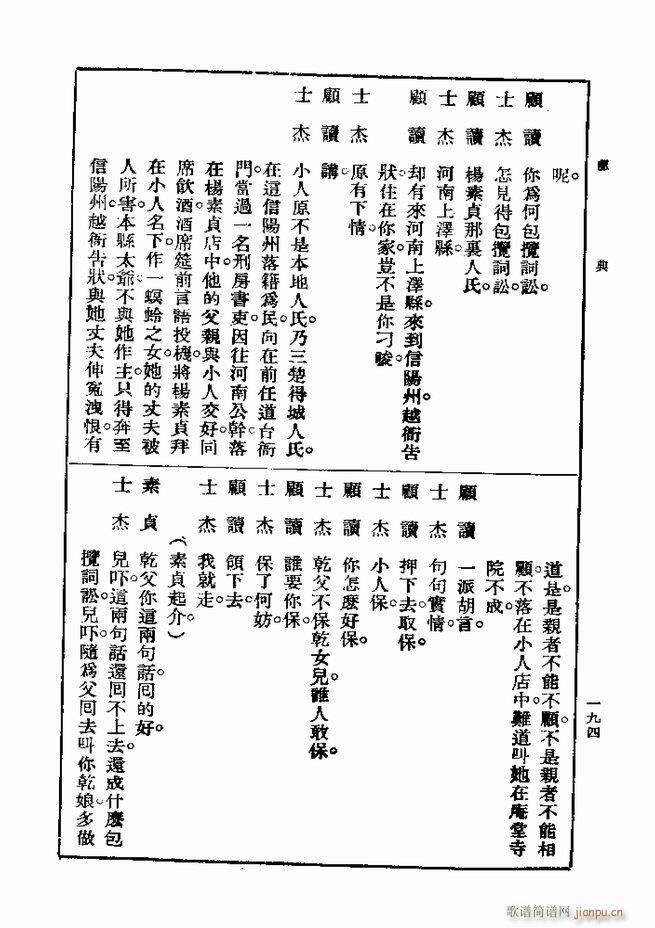 戲典
呢。
顧讀 你爲何包攬詞訟。
士杰 怎見得包攬詞訟。
顧讀 楊素貞那裏人氏。
士杰 河南上澤縣。
顧讀 却有來河南上澤縣來到信陽州越衙告
狀住在你家豈不是你刁唆。
士杰 原有下情。
顧讀 講。
士杰 小人原不是本地人氏。乃三楚得城人氏。
在這信陽州落籍爲民。向在前任道台衙
門當過一名刑房書吏。因往河南公幹落
在楊素貞店中。他的父親與小人交好。同
席飲酒。酒席筵前言語投機。將楊素貞拜
在小人名下作一螟蛉之女。她的丈夫被
人所害。本縣太爺不與她作主。只得奔至
信陽州越衙告狀。與她丈夫伸寃洩恨。有
道是是親者不能不顧。不是親者不能相
顧。不落在小人店中。難道叫她在庵堂寺
院不成。
顧讀 一派胡言。
士杰 句句實情。
顧讀 押下去取保。
士杰 小人保。
顧讀 你怎麽好保。
士杰 乾父不保乾女兒。誰人敢保。
顧讀 誰要你保。
士杰 保了何妨。
顧讀 領下去。
士杰 我就走。
（素貞起介）
素貞 乾父你這兩句話回的好。
士杰 兒吓。這兩句話還回不上去。還成什麽包
攬詞訟。兒吓隨爲父回去。叫你乾娘多做
一九四
歌谱简谱网
jianpu.cn